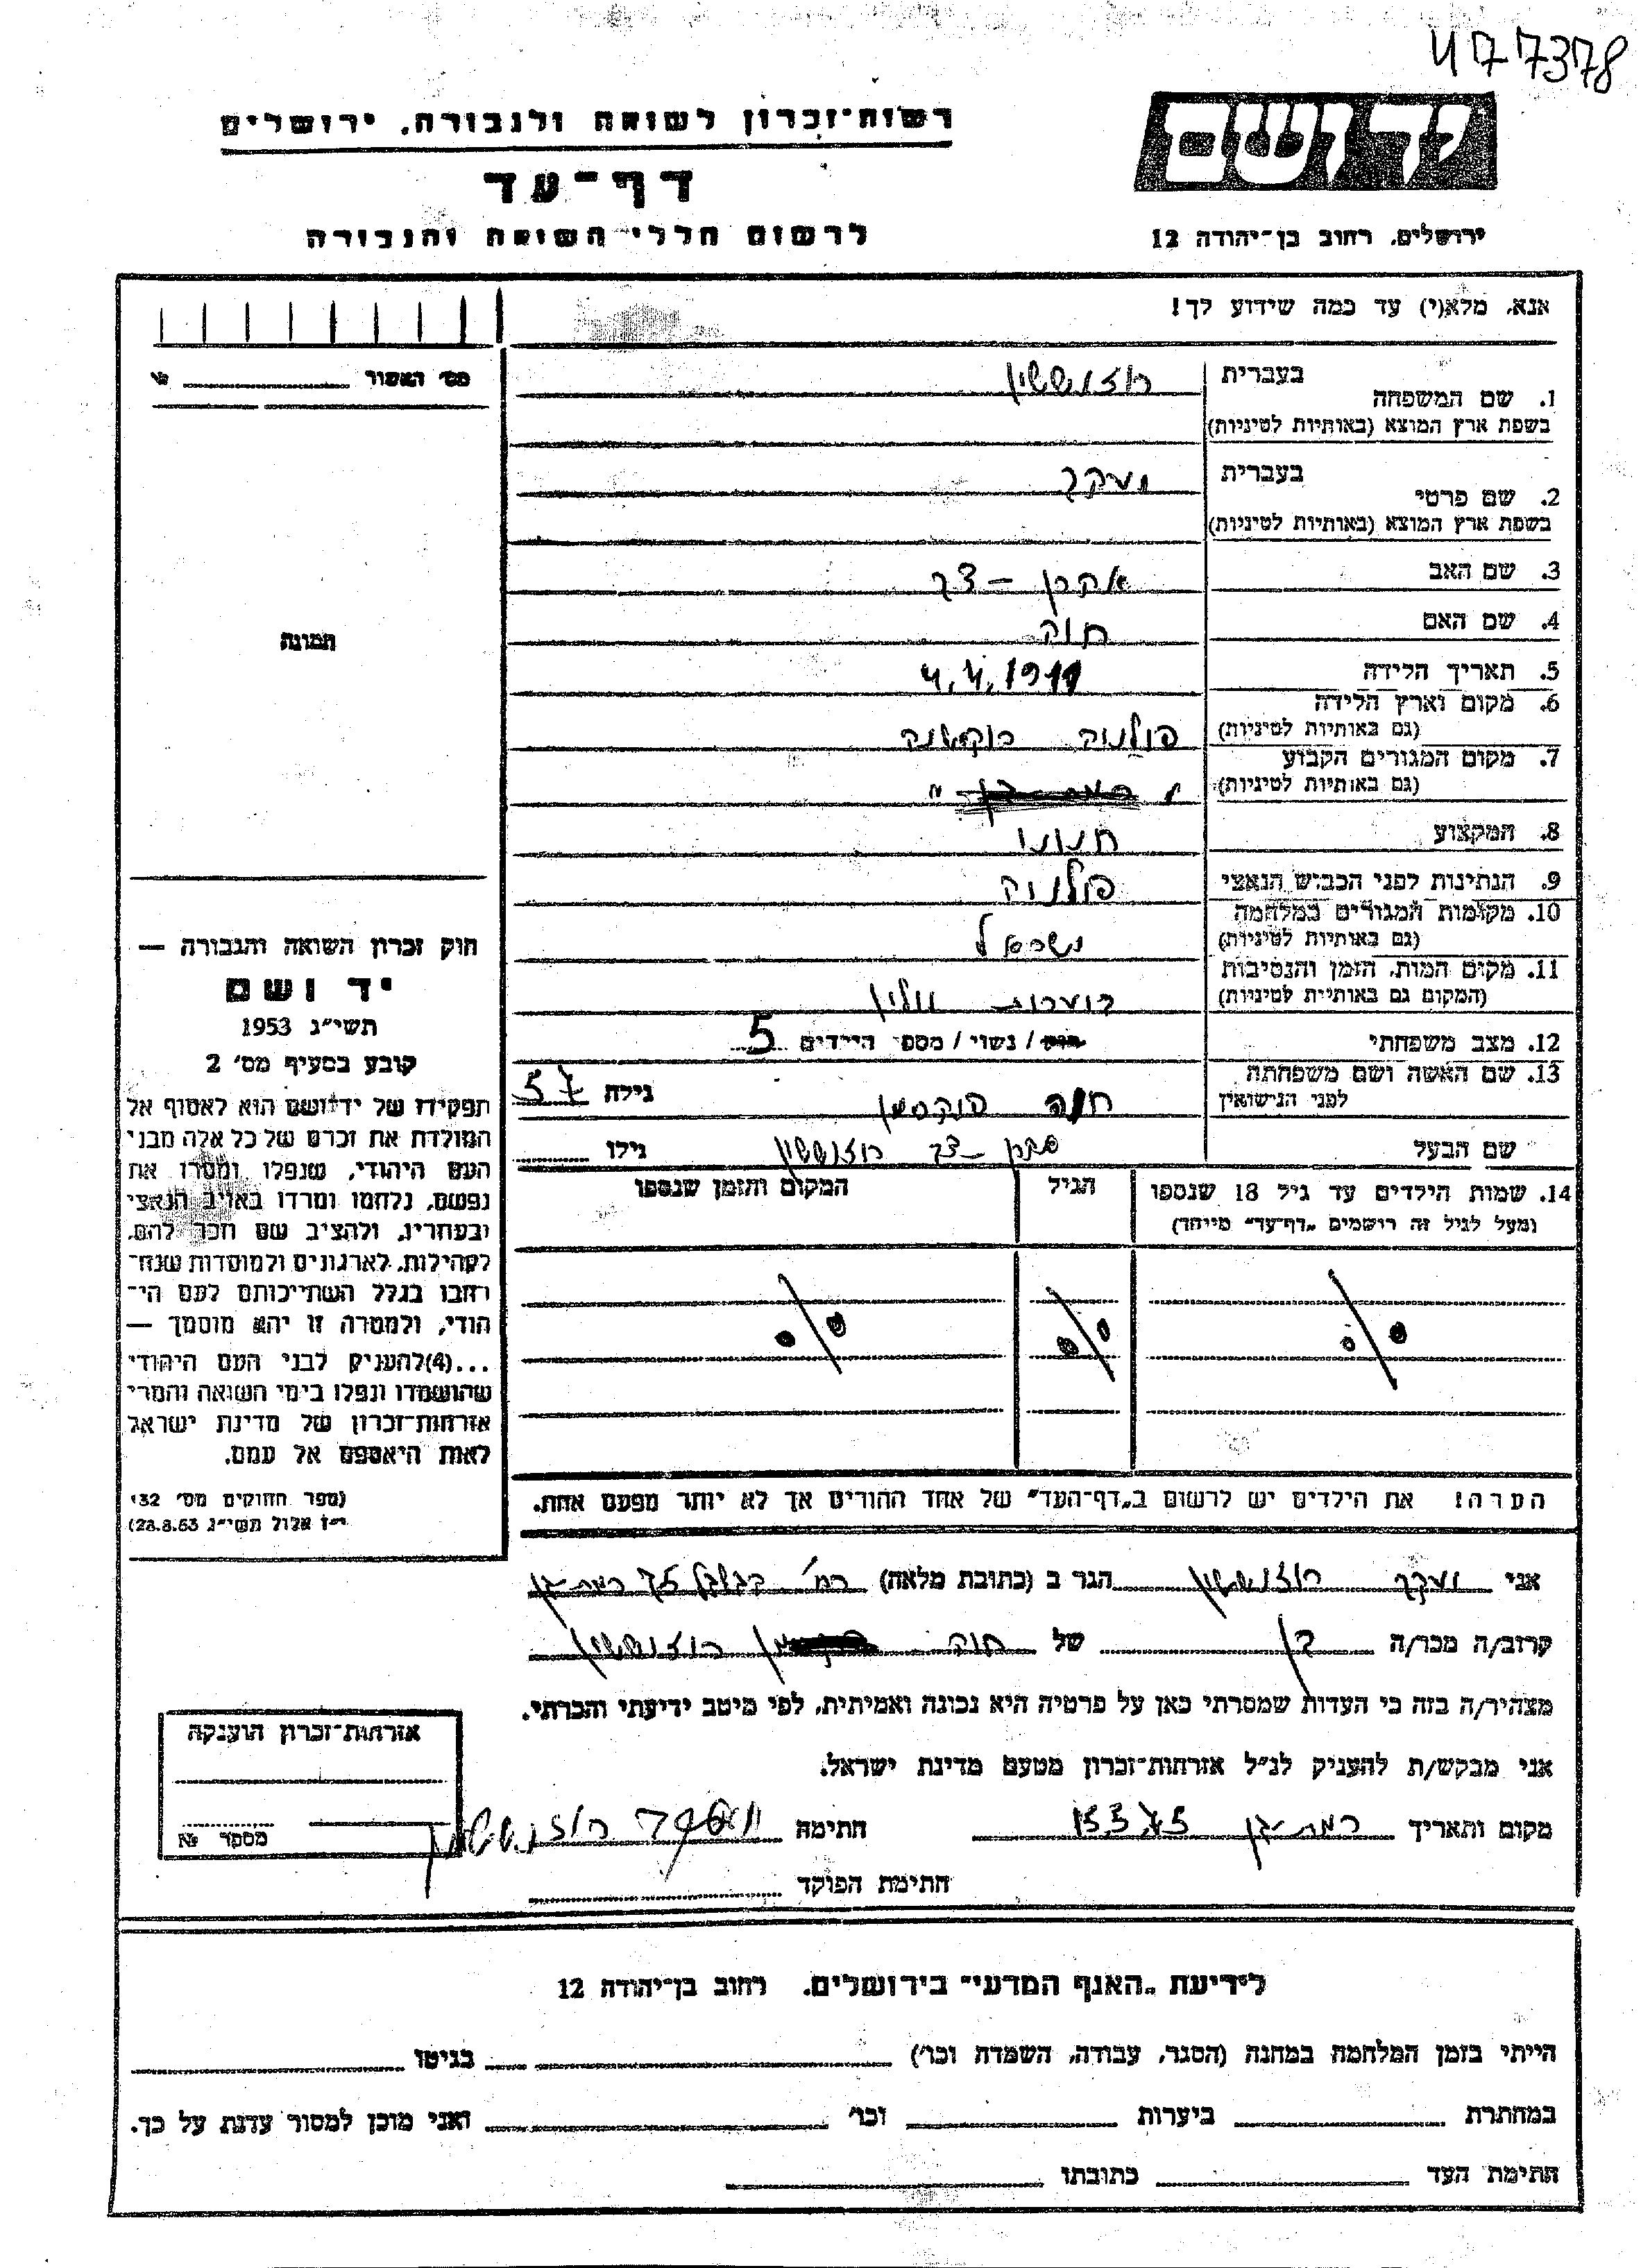 477378
יד ושם
רשות־זכרון לשואה ולגבורה, ירושלים
דף־עד
לרשום חללי השואה והגבורה
ירושלים, רחוב בן־יהודה 12
אנא, מלא(י) עד כמה שידוע לך!
מס' האשור
תמונה
1. שם המשפחה
בעברית רוזנששיין
בשפת ארץ המוצא (באותיות לטיניות)
2. שם פרטי
בעברית יעקב
בשפת ארץ המוצא (באותיות לטיניות)
3. שם האב אהרן – צבי
4. שם האם חוה
5. תאריך הלידה 4.4.1911
6. מקום וארץ הלידה
(גם באותיות לטיניות) פולניה
7. מקום המגורים הקבוע
(גם באותיות לטיניות) " "
8. המקצוע חנוני
9. הנתינות לפני הכביש הנאצי פולניה
10. מקומות המגורים במלחמה
(גם באותיות לטיניות) ישראל
11. מקום המות, הזמן והנסיבות
(המקום גם באותיות לטיניות) וולין
12. מצב משפחתי רווק / נשוי / מספר הילדים 5
13. שם האשה ושם משפחתה
לפני הנישואין חוה גילה 57
שם הבעל צבי רוזנששיין גילו
14. שמות הילדים עד גיל 18 שנספו
(מעל לגיל זה רישמים „דף־עד" מייחד)
הגיל
המקום והזמן שנספו
הערה! את הילדים יש לרשום ב„דף־העד" של אחד ההורים אך לא יותר מפעם אחת.
חוק זכרון השואה והגבורה —
יד ושם
תשי"ג 1953
קובע בסעיף מס' 2
תפקידו של יד־ושם הוא לאסוף אל
המולדת את זכרם של כל אלה מבני
העם היהודי, שנפלו ומסרו את
נפשם, נלחמו ומרדו באויב הנאצי
ובעוזריו, ולהציב שם וזכר להם,
לקהילות, לארגונים ולמוסדות שנח־
רבו בגלל השתייכותם לעם הי־
הודי, ולמטרה זו יהא מוסמך —
...(4) להעניק לבני העם היהודי
שהושמדו ונפלו בימי השואה והמרי
אזרחות־זכרון של מדינת ישראל
לאות היאספם אל עמם.
(ספר החוקים מס' 132
י"ז אלול תשי"ג 28.8.53)
אני יעקב רוזנששיין הגר ב (כתובת מלאה) רח' 75 רמת־גן
קרוב/ה מכר/ה בן של חוה רוזנששיין
מצהיר/ה בזה כי העדות שמסרתי כאן על פרטיה היא נכונה ואמיתית, לפי מיטב ידיעתי והכרתי.
אני מבקש/ת להעניק לנ"ל אזרחות־זכרון מטעם מדינת ישראל.
מקום ותאריך רמת־גן חתימה רוזנששיין
חתימת הפוקד
אזרחות־זכרון הוענקה
מספר №
לידיעת „האגף המדעי" בירושלים, רחוב בן־יהודה 12
הייתי בזמן המלחמה במחנה (הסגר, עבודה, השמדה וכו') בגיטו
במחתרת ביערות וכו' ואני מוכן למסור עדות על כך.
חתימת העד כתובתו